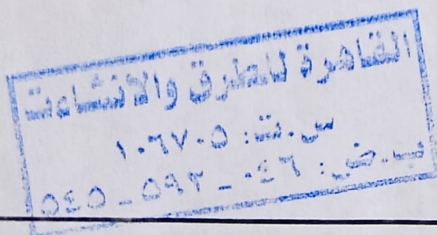 القاهرة للطرق والانشاءت
س.ت: ١٠٦٧٠٥
ب.ض: ٠٤٦ - ٥٩٣ - ٥٤٥